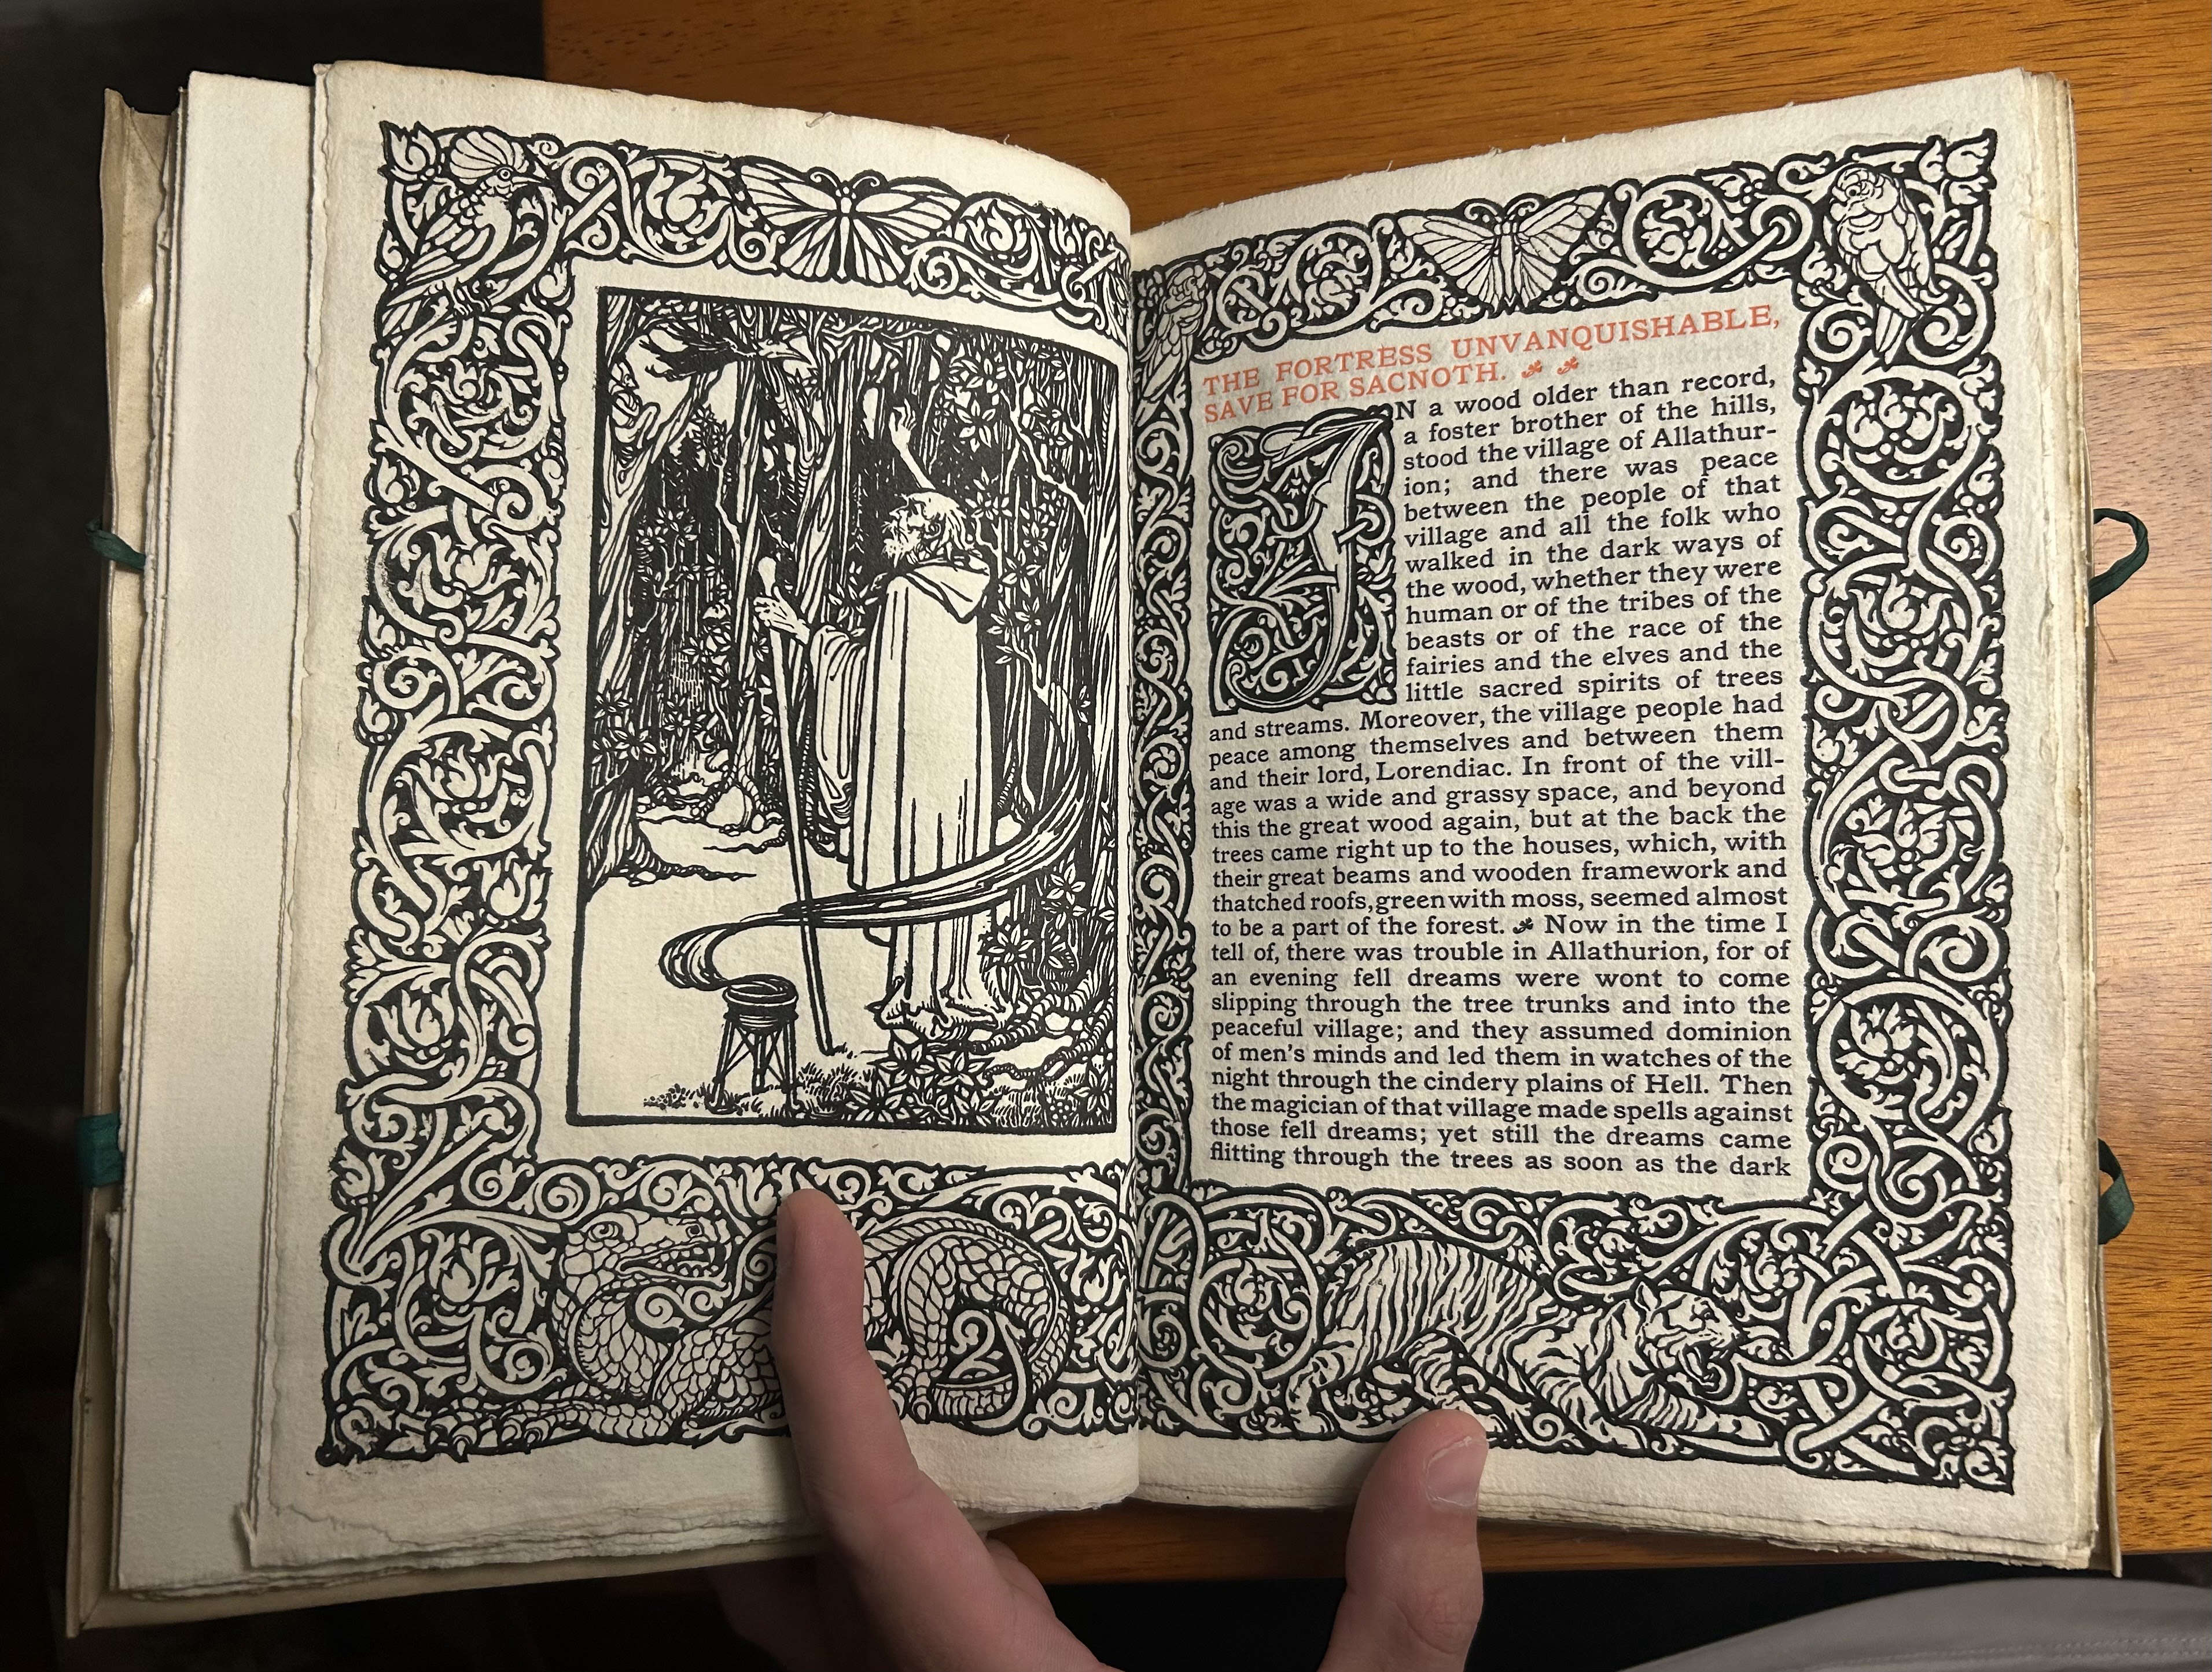 THE FORTRESS UNVANQUISHABLE,
SAVE FOR SACNOTH.
IN a wood older than record,
a foster brother of the hills,
stood the village of Allathur-
ion; and there was peace
between the people of that
village and all the folk who
walked in the dark ways of
the wood, whether they were
human or of the tribes of the
beasts or of the race of the
fairies and the elves and the
little sacred spirits of trees
and streams. Moreover, the village people had
peace among themselves and between them
and their lord, Lorendiac. In front of the vill-
age was a wide and grassy space, and beyond
this the great wood again, but at the back the
trees came right up to the houses, which, with
their great beams and wooden framework and
thatched roofs, green with moss, seemed almost
to be a part of the forest. Now in the time I
tell of, there was trouble in Allathurion, for of
an evening fell dreams were wont to come
slipping through the tree trunks and into the
peaceful village; and they assumed dominion
of men's minds and led them in watches of the
night through the cindery plains of Hell. Then
the magician of that village made spells against
those fell dreams; yet still the dreams came
flitting through the trees as soon as the dark